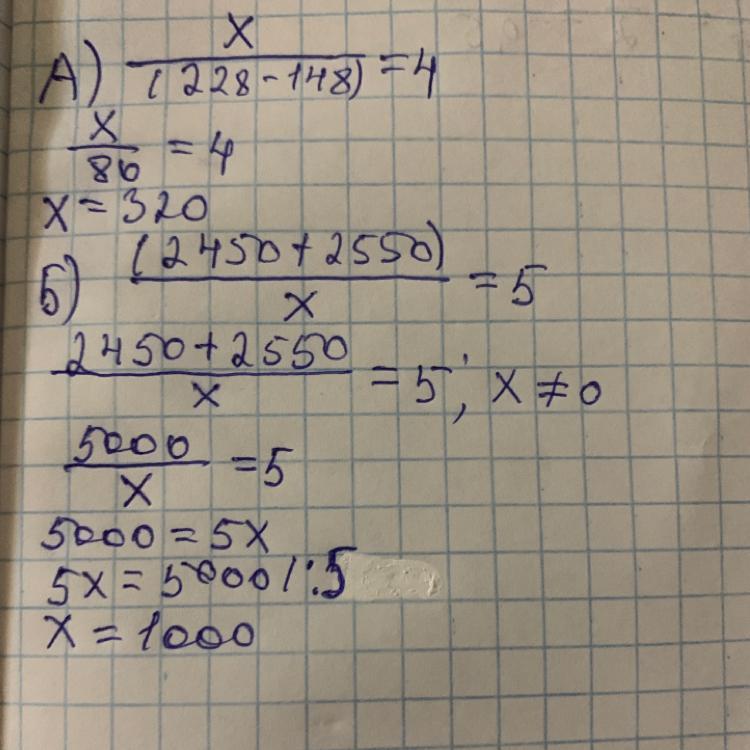 А) x/(228-148) = 4
x/80 = 4
x = 320
Б) (2450+2550)/x = 5
2450+2550/x = 5; x ≠ 0
5000/x = 5
5000 = 5x
5x = 5000 /:5
x = 1000